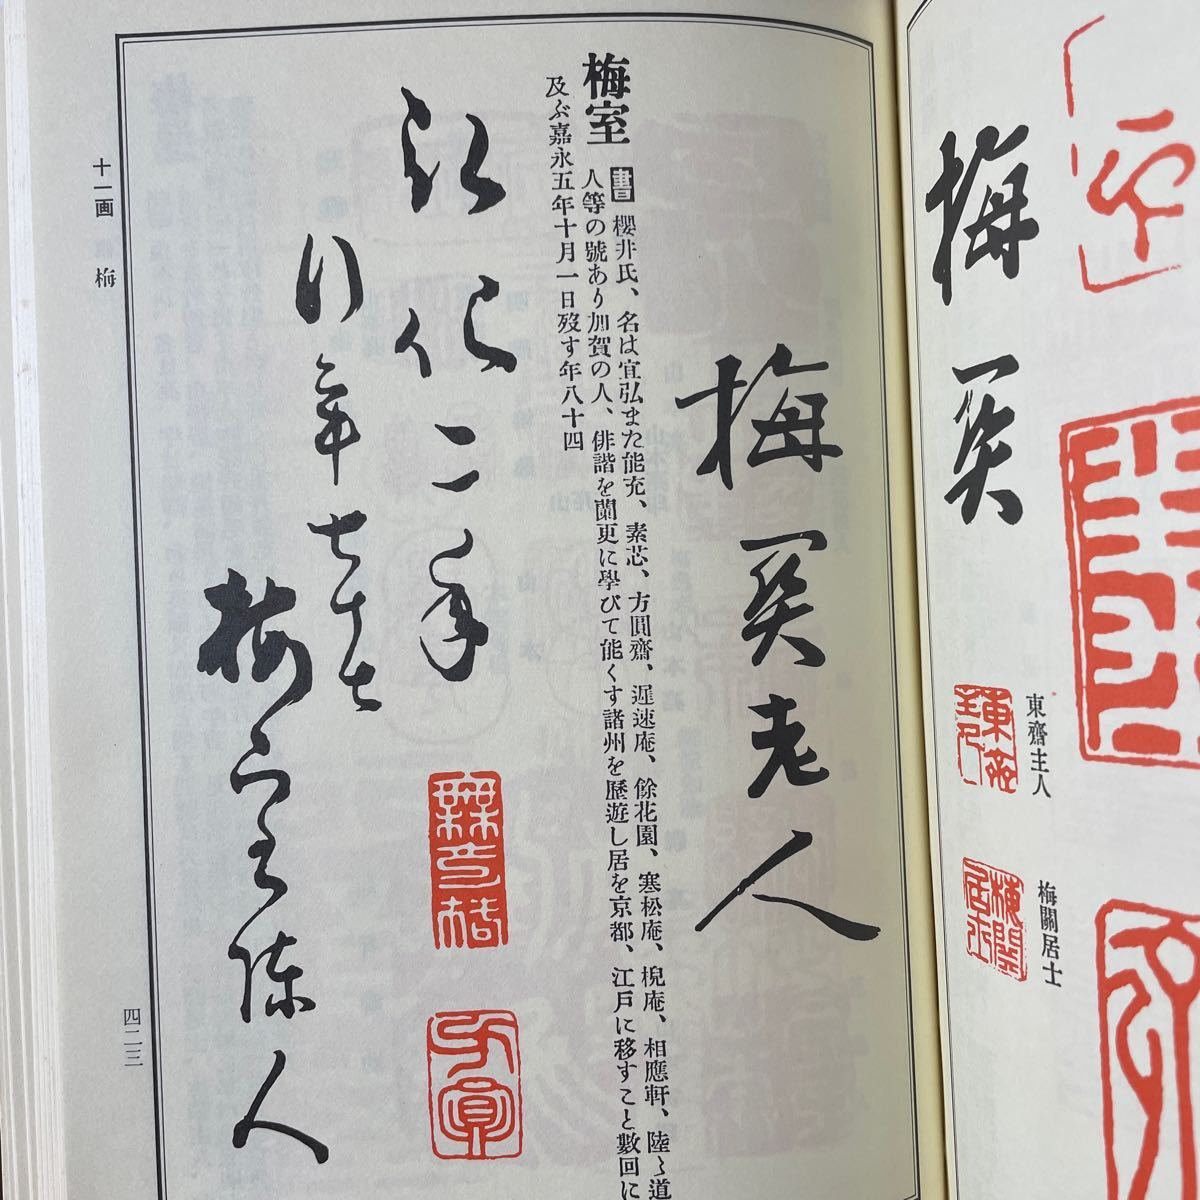 梅関
東齋主人
梅關居士
梅関老人
梅室
書 櫻井氏、名は宜弘また能充、素芯、方圓齋、遲速庵、餘花園、寒松庵、槐庵、相應軒、陸々道
人等の號あり加賀の人、俳諧を闌更に學びて能くす諸州を歷遊し居を京都、江戸に移すこと數回に
及ぶ嘉永五年十月一日歿す年八十四
弘化二年
行年七十七
梅室陳人
方圓
十一画 梅
四二三